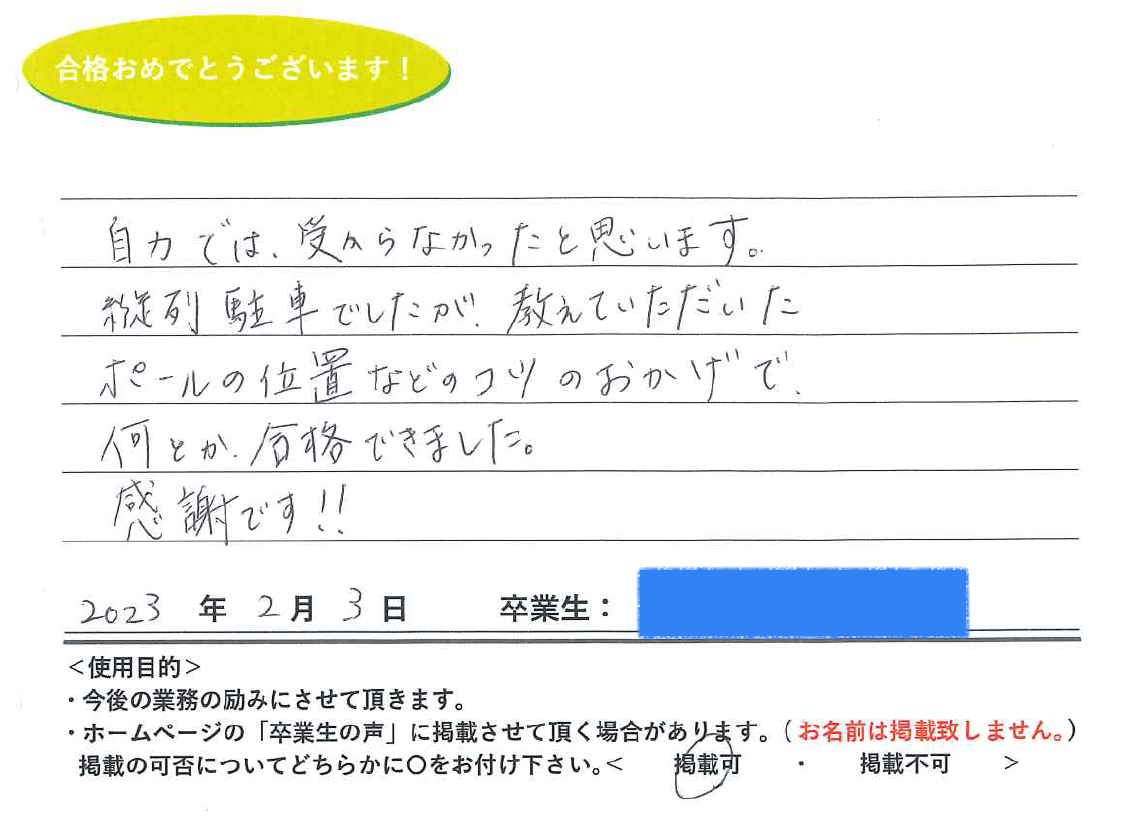 合格おめでとうございます！
自力では、受からなかったと思います。
縦列駐車でしたが、教えていただいた
ポールの位置などのコツのおかげで、
何とか、合格できました。
感謝です!!
2023 年 2 月 3 日 卒業生：
＜使用目的＞
・今後の業務の励みにさせて頂きます。
・ホームページの「卒業生の声」に掲載させて頂く場合があります。（お名前は掲載致しません。）
掲載の可否についてどちらかに〇をお付け下さい。＜ 掲載可 ・ 掲載不可 ＞